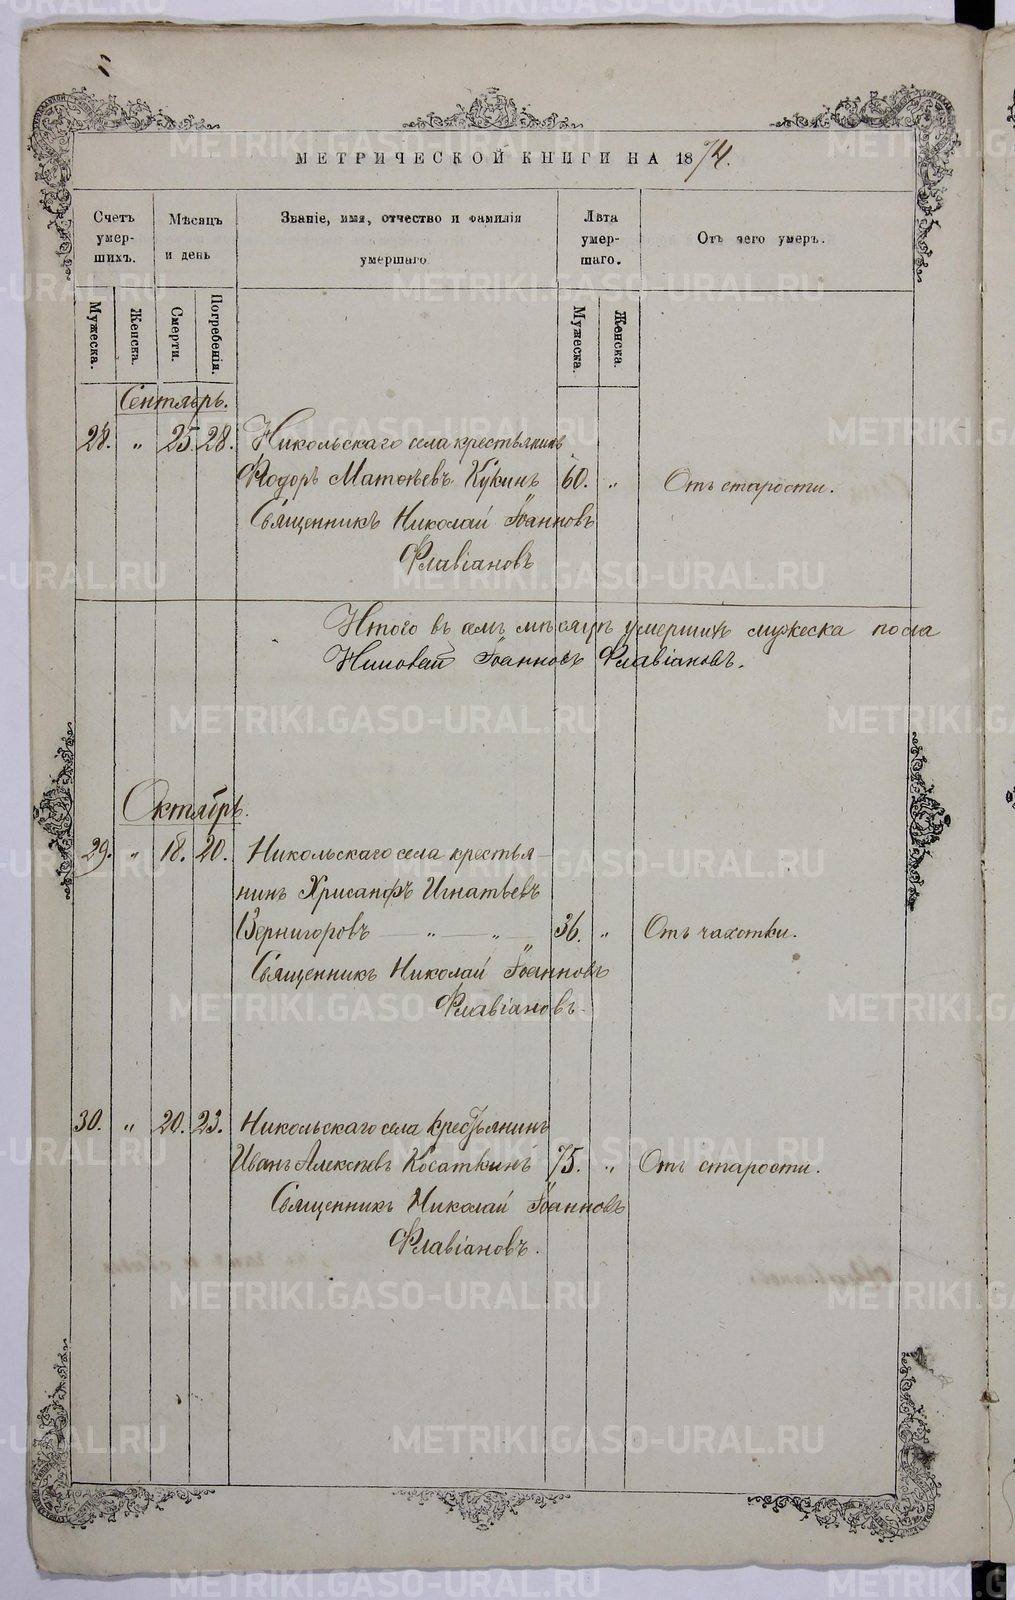 МЕТРИЧЕСКОЙ КНИГИ НА 1874.
Счетъ умер-шихъ.
Мѣсяцъ и день
Званіе, имя, отчество и фамилія умершаго
Лѣта умер-шаго.
Отъ чего умеръ.
Мужеска.
Женска.
Смерти.
Погребенія.
Мужеска.
Женска.
Сентябрь.
28. " 25. 28. Никольскаго села крестьянинъ
Ѳеодоръ Матѳѣевъ Кукинъ 60. " Отъ старости.
Священникъ Николай Іоанновъ
Флавіановъ
Итого въ семъ мѣсяцѣ умершихъ мужеска пола
Николай Іоанновъ Флавіановъ.
Октябрь.
29. " 18. 20. Никольскаго села крестья-
нинъ Хрисанфъ Игнатьевъ
Вернигоровъ — " — " — 36. " Отъ чахотки.
Священникъ Николай Іоанновъ
Флавіановъ.
30. " 20. 23. Никольскаго села крестьянинъ
Иванъ Алексѣевъ Косаткинъ 75. " Отъ старости.
Священникъ Николай Іоанновъ
Флавіановъ.
METRIKI.GASO-URAL.RU